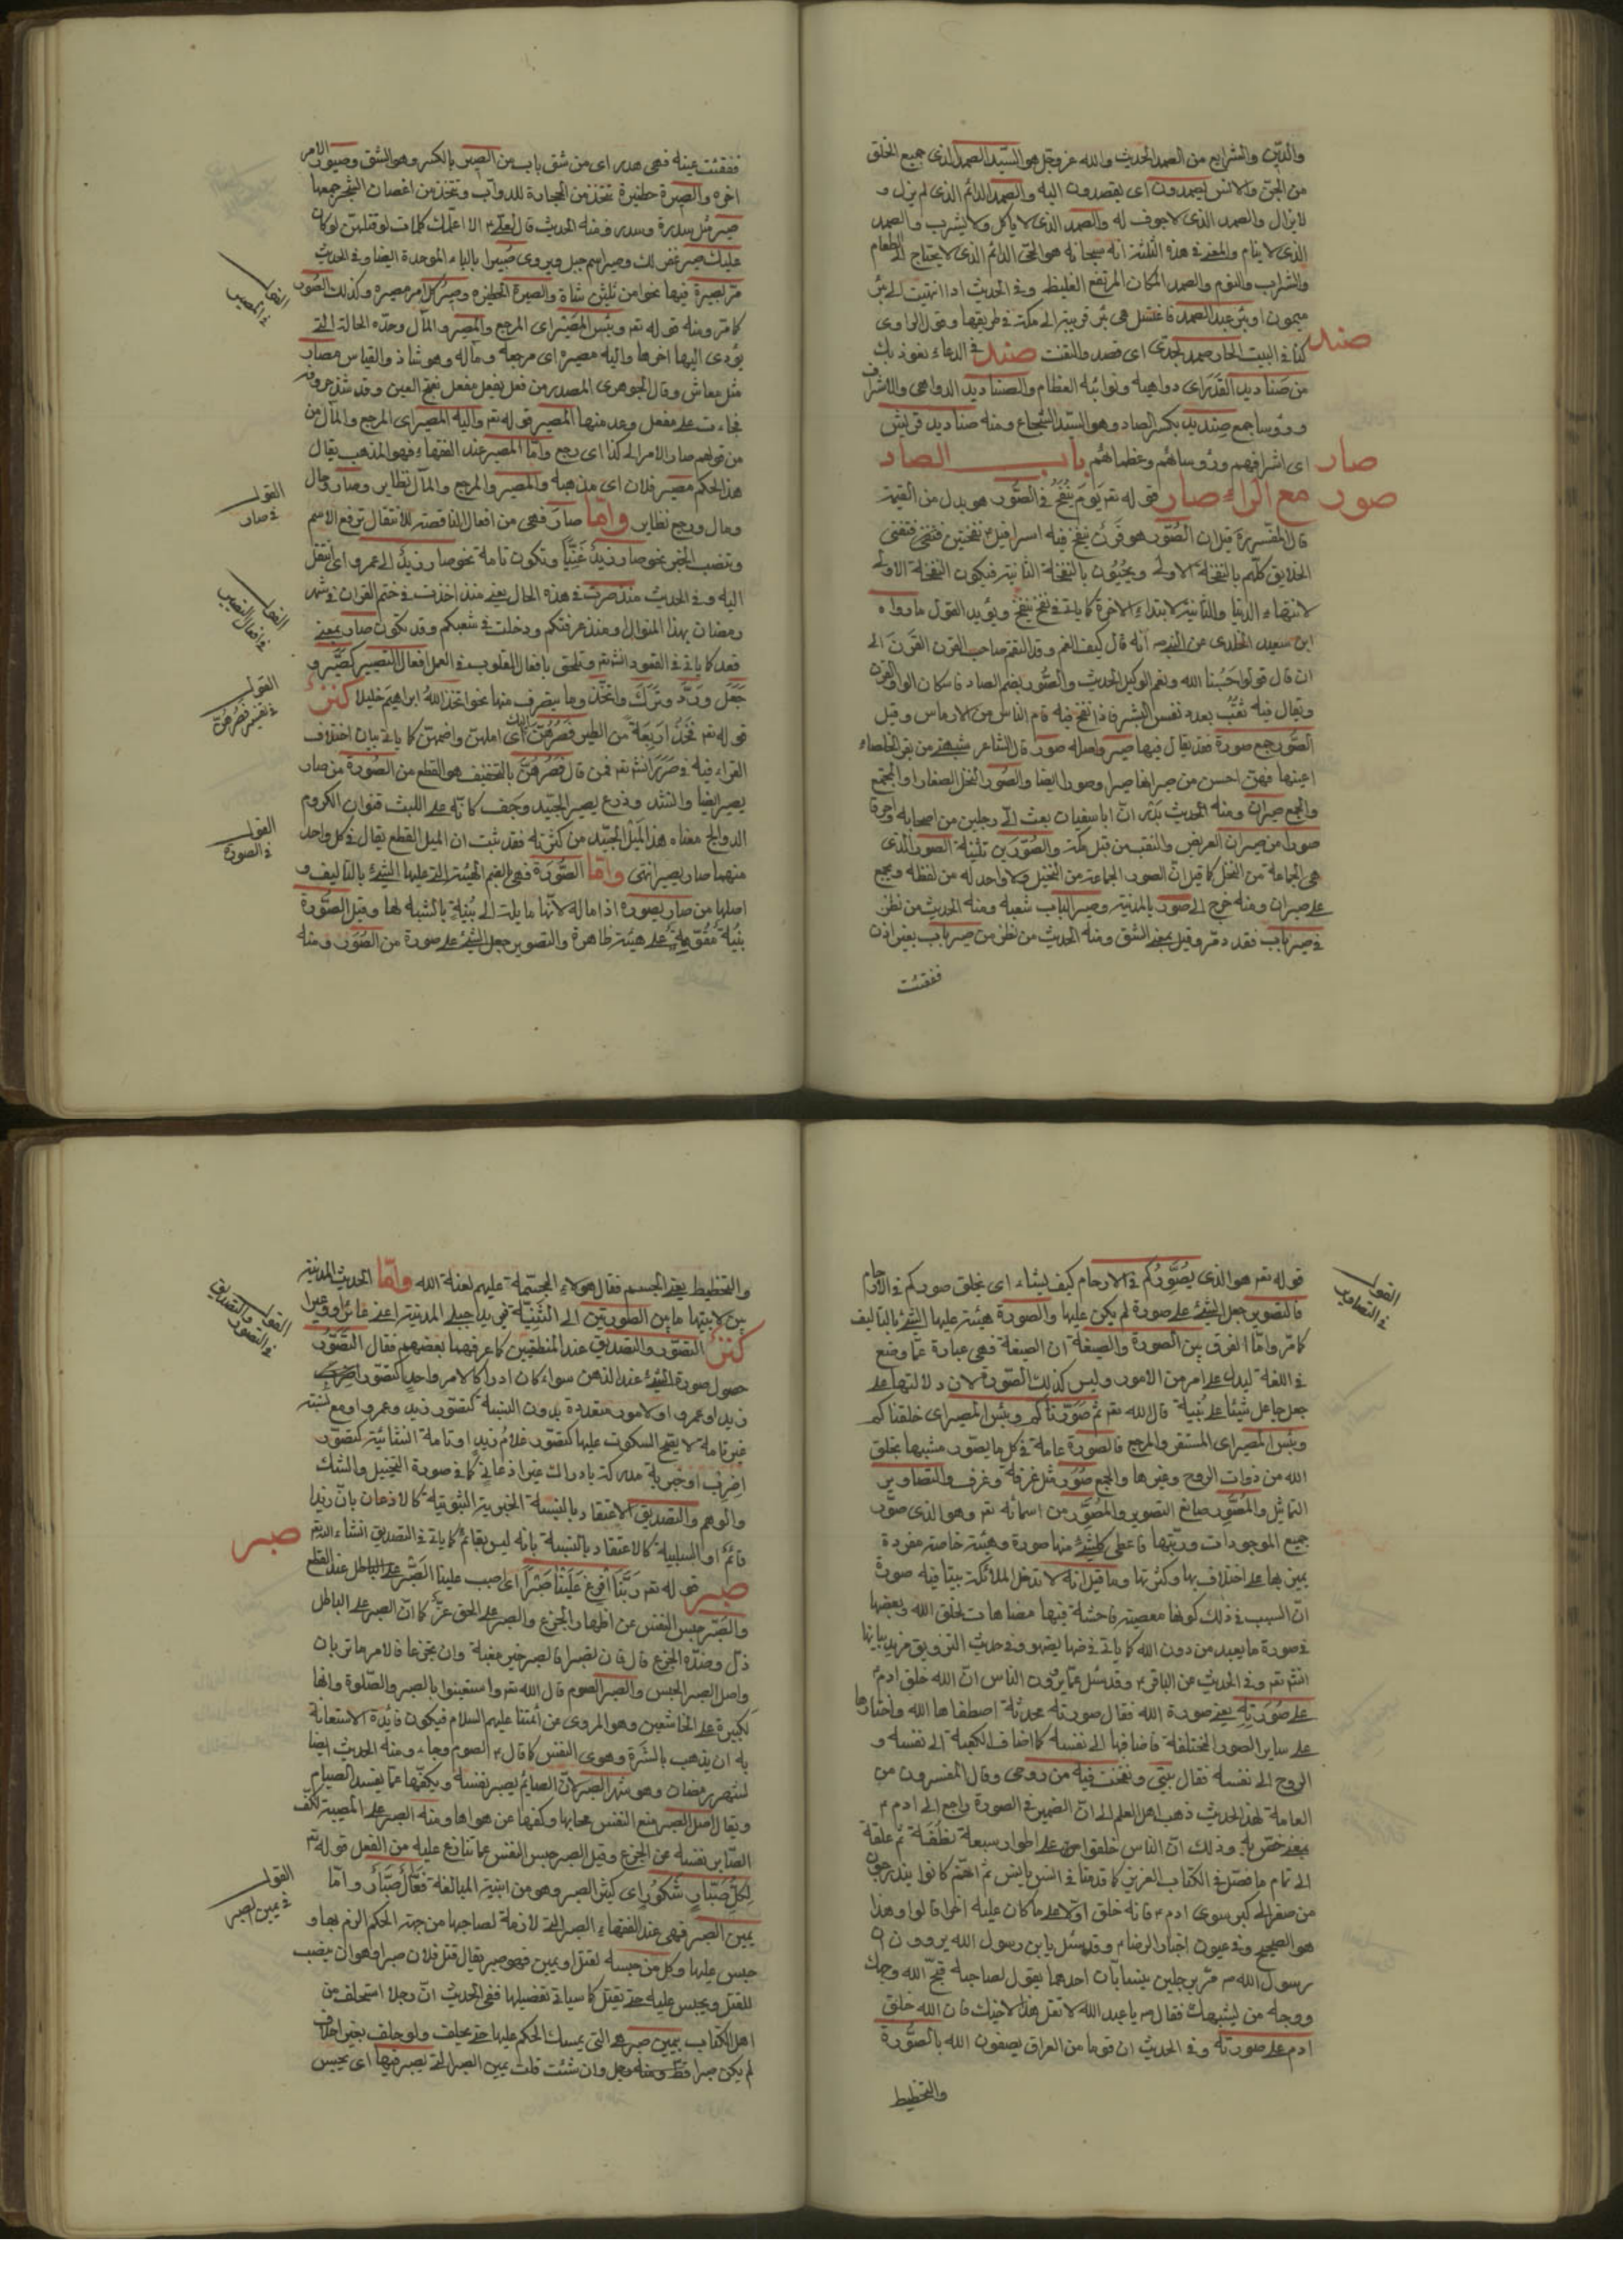 والدّين والشرايع من الصمد الحديث والله عزوجل هو السّيّد الصمد الذي جميع الخلق
من الجنّ والانس يصمدون اى يقصدون اليه والصمد الدائم الذي لم يزل و
لا يزال والصمد الذي لا جوف له والصمد الذي لا ياكل ولا يشرب والصمد
الذي لا ينام والمعنى في هذه الثلثة انه سبحانه هو الحيّ الدائم الذي لا يحتاج الى الطعام
والشراب والنوم والصمد المكان المرتفع الغليظ وفي الحديث اذا انتهيت الى بئر
ميمون او بئر عبد الصمد فاغتسل هي بئر قريبة الى مكة في طريقها وقول الراوى
كنا في البيت الحار صمد لجدى اى قصد والتفت صند في الدعاء نعوذ بك
صند
من صناديد القدر اى دواهيه ونوائبه العظام والصناديد الدواهي والاشراف
ورؤسا جمع صنديد بكسر الصاد وهو السّيّد الشجاع ومنه صناديد قريش
اى اشرافهم ورؤسائهم وعظمائهم باب الصاد
صار
مع الراء صار قوله تعه يَومَ يُنفَخُ في الصُّور هو بدل من القيمة
صور
قال المفسرة قيل ان الصّور هو قَرن ينفخ فيه اسرافيل نفختين فتفنى
الخلايق كلّهم بالنفخة الاولى ويحيُون بالنفخة الثانية فيكون النفخة الاولى
لانتهاء الدنيا والثانية لابتداء الاخرة كما ياتى في نفخ ينفخ ويؤيد القول ما رواه
ابن سعيد الخدرى عن النبى ص انه قال كيف انعم وقد التقم صاحب القرن القَرنَ الى
ان قال قولوا حَسبُنا الله ونعم الوكيل الحديث والصُّور بضم الصاد فاسكان الواو القرن
الصّور جمع صورة فقد يقال فيها صير واصله صور قال الشاعر
والجمع صيران ومنه الحديث انّ ابا سفيان بعث الى رجلين من اصحابه
هي الجماعة من النخل كما قيل انّ الصور الجماعة من النخيل ولا واحد له من لفظه ويجمع
على صيران ومنه خرج الى صور بالمدينة وصير الباب شعبه ومنه الحديث من نظر
في صير باب فقد دمر وقيل بمعنى الشق ومنه الحديث من نظر من صير باب بغير اذن
ففقئت
ففقئت عينه فهى هدر اى من شق باب من الصير بالكسر وهو الشق وصيور الامر
اخره والصيرة حظيرة تتخذ من الحجارة للدواب وتتخذ من اغصان الشجر جمعها
صير مثل سدرة وسدر ومنه الحديث قال لعلى الا اعلمك كلمات لو قلتهن لو كان
عليك صير غفر لك وصير اسم جبل ويروى صُبيرا بالباء الموحدة ايضا وفي الحديث
مرّ بصيرة فيها نحوا من ثلثين شاة والصيرة الحظيرة وصير كل امر مصيره وكذلك الصُّور
كما مر ومنه قوله تعه وبئس المَصير اى المرجع والمصير والمآل وحدّه الحالة التى
يؤدى اليها اخرها واليه مصيره اى مرجعه ومآله وهو شاذ والقياس مصار
مثل معاش وقال الجوهرى المصدر من فعل يفعل مفعل بفتح العين وقد شذّ حروف
فجاءت على مفعل وعد منها المصير قوله تعه واليه المصير اى المرجع والمآل من
من قولهم صار الامر الى كذا اى رجع وامّا المصير عند الفقهاء فهو المذهب يقال
هذا الحكم مصير فلان اى مذهبه والمصير والمرجع والمآل نظاير وصار وحال
ومال ورجع نظاير وامّا صارَ فهى من افعال الناقصة للانتقال ترفع الاسم
وتنصب الخبر نحو صار زيدٌ غَنِيّاً وتكون تامة نحو صار زيدٌ الى عمرو اى انتقل
اليه وفي الحديث منذ صرت في هذه الحال يعنى منذ اخذت في ختم القران في شهر
رمضان بهذا المنوال ومنذ عرفتكم ودخلت في شعبكم وقد تكون صار بمعنى
قعد كما ياتى في القعود انشتعه وتلحق بافعال القلوب في العمل افعال التصيير كصَيَّر و
جَعَل وَرَدَّ وتَرَكَ واتّخذ وما يتصرف منها نحو اتخذ اللهُ ابراهيمَ خليلا كنز
قوله تعه فَخُذ اَربَعَةً من الطير فَصُرهُنّ اليك اى املهن واضمهن كما ياتى بيان اختلاف
القراء فيه في ضرر انشتعه فمن قال فصُرهُنّ بالتخفيف هو القطع من الصُورة من صار
يصير ايضا وانشد وفرع يصير الجيّد وَحِف كانّه على الليث قنوان الكروم
الدوالح معناه هذا الميل الجيد من كثرته فقد ثبت ان الميل القطع يقال في كل واحد
منهما صار يصير انتهى وامّا الصُّورَة فهى بالضم الهيئة التى عليها الشئ بالتأليف و
اصلها من صار يصوره اذا ماله لانّها مايلة الى بُنيَةٍ بالشبه لها وقيل الصُّورة
بنية مقوّمةٌ على هيئة ظاهرة والتصوير جعل الشئ على صورة من الصُوَر ومنه
القول
في المصير
القول
في صار
القول
في افعال التصيير
القول
في تفسير فصُرهُنّ
القول
في الصورة
قوله تعه هو الذى يُصَوِّرُكُم في الارحام كيف يشاء اى يخلق صوركم في الارحام
فالتصوير جعل الشئ على صورة لم يكن عليها والصورة هيئة عليها الشئ بالتاليف
كما مرّ وامّا الفرق بين الصورة والصيغة ان الصيغة فهى عبارة عمّا وضع
في اللغة ليدل على امر من الامور وليس كذلك الصّورة لان دلالتها على
جعل جاعل شيئا على بنية قال الله تعه ثمّ صَوّرناكم وبئس المصير اى خلقناكم
وبئس المصير اى المستقر والمرجع فالصورة عامة في كل ما يصوّر مشبها بخلق
الله من ذوات الروح وغيرها والجمع صُوَر مثل غرفة وغرف والتصاوير
التماثيل والمُصَوِّر صانع التصوير والمُصَوِّر من اسمائه تعه وهو الذى صوّر
جميع الموجودات ورتّبها فاعطى كلّ شئ منها صورة وهيئة خاصة مفردة
يميز بها على اختلافها وكثرتها وما قيل انه لا تدخل الملائكة بيتا فيه صورة
انّ السبب في ذلك كونها معصية فاحشة فيها مضاهات لخلق الله وبعضها
في صورة ما يعبد من دون الله كما ياتى في ضها يضهو وفي حديث التزويق مزيد بيانها
انشتعه وفي الحديث عن الباقر وقد سئل عمّا يروون الناس انّ الله خلق ادم
على صُورَتِهِ يعنى صورة الله فقال صورته محدثة اصطفاها الله واختارها
على ساير الصور المختلفة فاضافها الى نفسه كما اضاف الكعبة الى نفسه و
الروح الى نفسه فقال بيتى ونفخت فيه من روحى وقال المفسرون من
العامة لهذا الحديث ذهب اهل العلم الى انّ الضمير في الصورة راجع الى ادم
بمعنى ختص به وذلك انّ الناس خلقوا على اطوار سبعة نطفة ثم علقة
الى تمام ما فصّل في الكتاب العزيز كما قدمنا في السين يانس ثم انهم كانوا يندرجون
من صغر الى كبر سوى ادم فانه خلق اولا على ما كان عليه اخرا قالوا وهذا
هو الصحيح وفي عيون اخبار الرضا وقد سئل يا ابن رسول الله يروون ان
رسول الله ص مرّ برجلين يتسابّان احدهما يقول لصاحبه قبّح الله وجهك
ووجه من يشبهك فقال ص يا عبد الله لا تقل هذا لاخيك فان الله خلق
ادم على صورته وفي الحديث ان قوما من العراق يصفون الله بالصّورة
والتخطيط
القول
في التصاوير
والتخطيط يعنى الجسم فقال هؤلاء المجسّمة عليهم لعنة الله وامّا الحديث المدينة
بين لابتيها ما بين الصّورتين الى الثنيّة فهى يريد جبلى المدينة اعنى عائرا ووعيرا
كنز التصوّر والتصديق عند المنطقيين كما عرفهما بعضهم فقال التّصَوّر
حصول صورة الشئ عند الذهن سواء كان ادراكا لامر واحد كتصوّر
زيد او عمرو او لامور متعددة بدون النسبة كتصوّر زيد وعمرو او مع نسبة
غير تامة لا يصح السكوت عليها كتصوّر غلام زيد او تامة انشائية كتصوّر
اضرب او خبرية مدركة بادراك غير اذعانى كما في صورة التخييل والشك
والوهم والتصديق الاعتقاد بالنسبة الخبرية الثبوتية كالاذعان بانّ زيدا
قائمٌ او السلبية كالاعتقاد بالنسبة بانه ليس بقائم كما ياتى في التصديق انشاء الله تعه
صبر
صبر قوله تعه رَبَّنا أَفرِغ عَلَينا صَبراً اى صب علينا الصَّبر على الباطل عند القطع
والصّبر حبس النفس عن اظهار الجزع والصبر على الحق عزّ كما انّ الصبر على الباطل
ذلّ وضدّه الجزع قال فان تصبرا فالصبر خير مغبة وان تجزعا فالامر ما تريان
واصل الصبر الحبس والصبر الصوم قال الله تعه واستعينوا بالصبر والصّلوة وانها
لكبيرة على الخاشعين وهو المروى عن ائمتنا عليهم السلام فيكون فائدة الاستعانة
به ان يذهب بالشرة وهوى النفس كما قال الصوم وجاء ومنه الحديث ايضا
لشهر رمضان وهو شهر الصبر لانّ الصائم يصبر نفسه ويكفّها عمّا يفسد الصيام
ويقال اصل الصبر منع النفس محابها وكفها عن هواها ومنه الصبر على المصيبة لكف
الصّابر نفسه عن الجزع وقيل الصبر حبس النفس عما تنازع عليه من الفعل قوله تعه
لِكُلِّ صَبّارٍ شَكُورٍ اى كثير الصبر وهو من ابنية المبالغة فَعّال صَبّار وامّا
يمين الصبر فهى عند الفقهاء الصبر التى لازمة لصاحبها من جهة الحكم الزم بها و
حبس عليها وكل من حبسه لقتل او يمين فهو صبر يقال قتل فلان صبرا وهو ان ينصب
للقتل ويحبس عليه حتى يقتل كما سياتى تفصيلها ففى الحديث انّ رجلا استحلف من
اهل الكتاب بيمين صبر هى التى يمسك الحكم عليها حتى يحلف ولو حلف بغير احلاف
لم يكن صبرا وان شئت قلت يمين الصبر التى يصبر فيها اى يحبس
القول
في التصور والتصديق
القول
في يمين الصبر